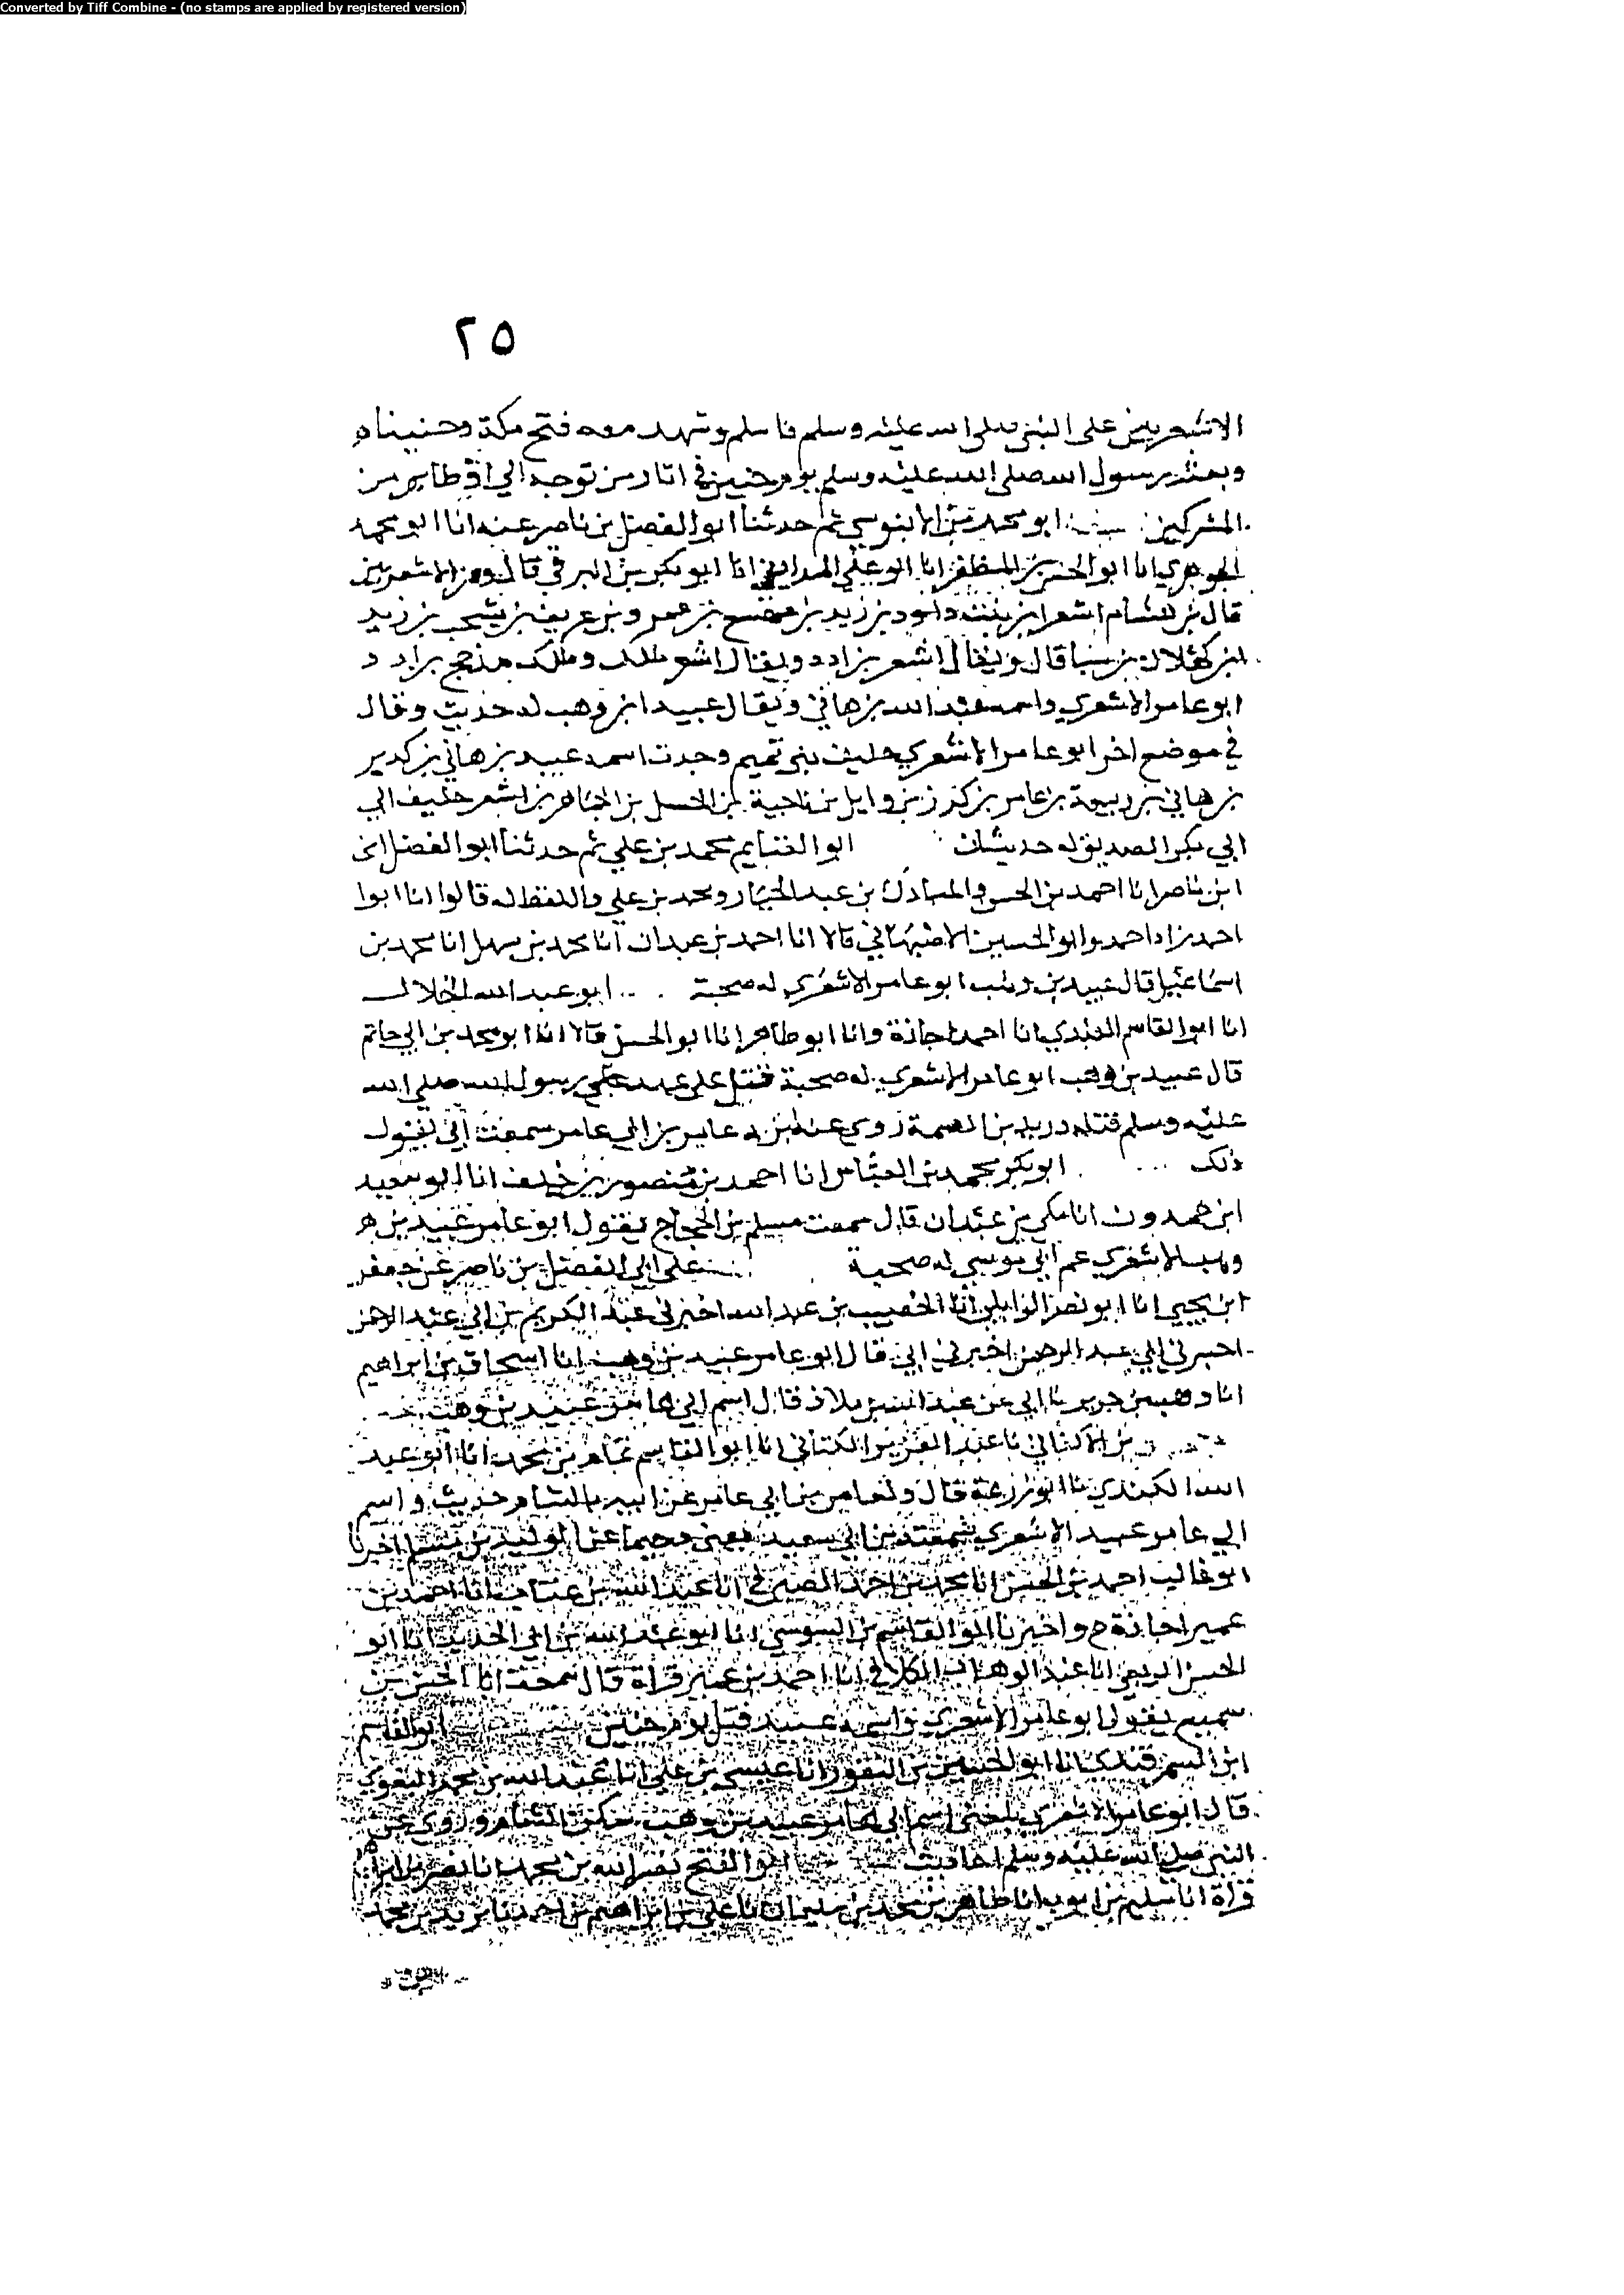 Converted by Tiff Combine - (no stamps are applied by registered version)
٢٥
الاشعريين على النبي صلى الله عليه وسلم فاسلم وشهد معه فتح مكة وحنيناه
وبعثه رسول الله صلى الله عليه وسلم يوم حنين في اثار من توجه الي اوطاس من
المشركين ابو محمد بن الابنوسي ثم حدثنا ابو الفضل بن ناصر عنه انا ابو محمد
الجوهري انا ابو الحسن بن المظفر انا ابو علي المدايني انا ابو بكر بن البرقي قال ومن الاشعريين
قال بن هشام اشعر بن بنت داود بن زيد بن عمرو بن عريب بن يشجب بن زيد
ابن كهلان بن سبا قال ويقال اشعر بن ادد ويقال اشعر ملك وملك مذحج بن ادد
ابو عامر الاشعري واسمه عبد الله بن هاني ويقال عبيد ابن وهب له حديث وقال
في موضع اخر ابو عامر الاشعري حليف بني تميم وجدت اسمه عبيد بن هاني بن كدير
بن هاني بن ربيعة بن عامر بن كدر بن وايل بن ناجية بن الحسل بن الجماهر بن اشعر حليف الي
ابي بكر الصديق له حديثان ابو الغنايم محمد بن علي ثم حدثنا ابو الفضل ان
ابن ناصر انا احمد بن الحسن والمبارك بن عبد الجبار ومحمد بن علي واللفظ له قالوا انا ابوا
احمد زاد احمد وابو الحسين الاصبهاني قالا انا احمد بن عبدان انا محمد بن سهل انا محمد بن
اسماعيل قال عبيد بن وهب ابو عامر الاشعري له صحبة ابو عبد الله الخلال
انا ابو القاسم العبدي انا احمد اجازة وانا ابو طاهر انا ابو الحسن قالا انا ابو محمد بن ابي حاتم
قال عبيد بن وهب ابو عامر الاشعري له صحبة قتل على عهد رسول الله صلى الله
عليه وسلم قتله دريد بن الصمة روى عنه ابنه عامر بن ابي عامر سمعت ابي يقول
ذلك ابو بكر محمد بن العباس انا احمد بن منصور بن خلف انا ابو سعيد
ابن حمدون انا مكي بن عبدان قال سمعت مسلم بن الحجاج يقول ابو عامر عبيد بن
وهب الاشعري عم ابي موسي له صحبة على ابي الفضل بن ناصر عن جعفر
ابن يحيي انا ابو نصر الوايلي انا الخصيب بن عبد الله اخبرني عبد الكريم بن ابي عبد الرحمن
اخبرني ابي عبد الرحمن اخبرني ابي قال ابو عامر عبيد بن وهب انا اسحاق بن ابراهيم
انا وهب بن جرير نا ابي عن عبد الله بن ملاذ قال اسم ابي عامر عبيد بن وهب
بن الاكفاني نا عبد العزيز الكتاني انا ابو القاسم تمام بن محمد انا ابو عبد
الله الكندي نا ابو زرعة قال ولعامر بن ابي عامر عن ابيه بالشام حديث واسم
ابي عامر عبيد الاشعري سمعته من ابي سعيد يعني دحيما عن الوليد بن مسلم اخبرنا
ابو غالب احمد بن الحسن انا محمد بن احمد الصيرفي انا عبد الله بن عتاب انا احمد بن
عمير اجازة ح واخبرنا ابو القاسم بن السوسي انا ابو عبد الله بن ابي الحديد انا ابو
الحسن الربعي انا عبد الوهاب الكلابي انا احمد بن عمير قراة قال سمعت ابا الحسن بن
سميع يقول ابو عامر الاشعري واسمه عبيد قتل يوم حنين ابو القاسم
ابن السمرقندي انا ابو الحسين بن النقور انا عيسى بن علي انا عبد الله بن محمد البغوي
قال ابو عامر الاشعري بلغني اسم ابي عامر عبيد بن وهب سكن الشام وروى عن
النبي صلى الله عليه وسلم احاديث ابو الفتح نصر الله بن محمد انا نصر بن ابراهيم
قراة انا سليم بن ايوب انا طاهر بن محمد بن سليمان نا علي بن ابراهيم بن احمد نا يزيد بن محمد